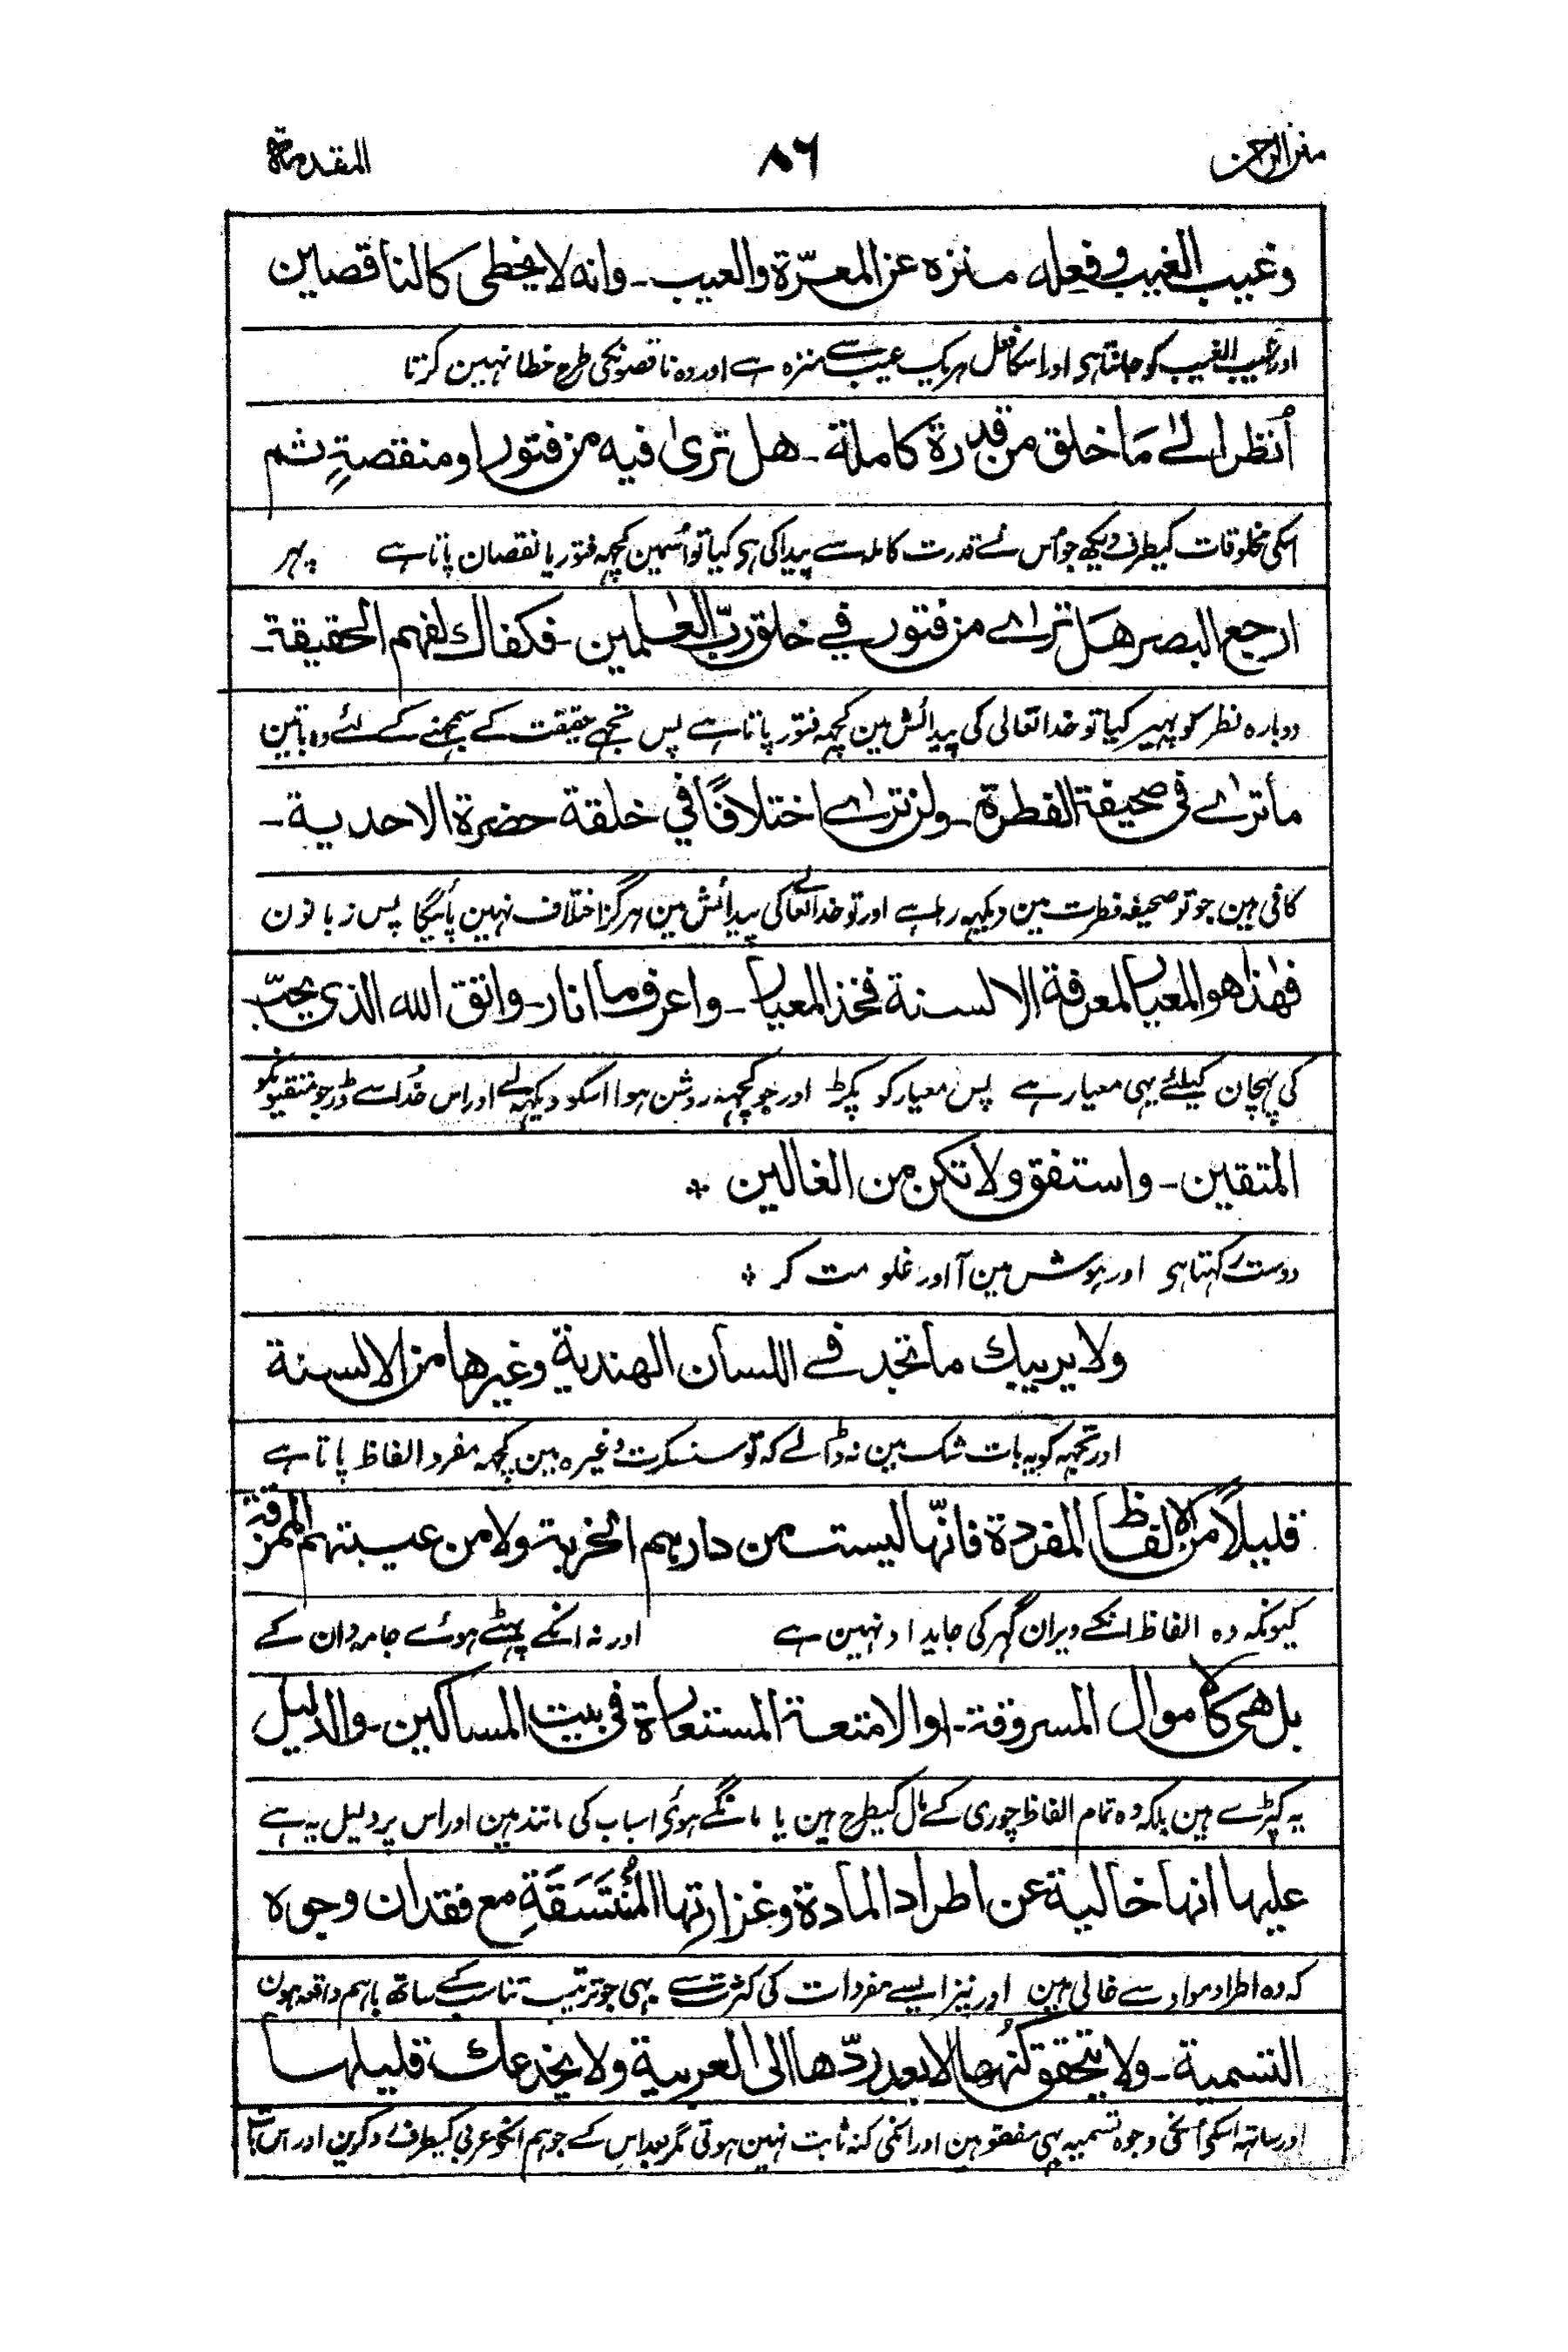 منن الرحمن ۸۶ المقدمة
وغيب الغيب وفعله منزه عن المعرّة والعيب ـ وانه لا يخطى كالناقصين
اور غیب الغیب کو جانتا ہی اور اسکا فعل ہریک عیب سے منزہ ہے اور وہ ناقصونکی طرح خطا نہین کرتا
اُنظر الىٰ مَا خلق من قدرة كاملة ـ هل ترىٰ فيه من فتور او منقصةٍ ثم
اسکی مخلوقات کیطرف دیکھ جو اُس نے قدرت کاملہ سے پیدا کی ہی کیا تو اُسمین کچہہ فتور یا نقصان پاتا ہے پہر
ارجع البصر هَل ترىٰ من فتور في خلق ربّ العٰلمين ـ فكفاك لفهم الحقيقة ـ
دوبارہ نظر کو پہیر کیا تو خدا تعالی کی پیدائش مین کچہہ فتور پاتا ہے پس تجہے حقیقت کے سمجہنے کے لئے وہ باتین
ما ترىٰ فى صحيفة الفطرة ـ ولن ترىٰ اختلافًا في خلقة حضرة الاحدية ـ
کافی ہین جو تو صحیفہ فطرت مین دیکہہ رہا ہے اور تو خدا تعالےٰ کی پیدائش مین ہرگز اختلاف نہین پائیگا پس زبانون
فهٰذا هو المعيار لمعرفة الالسنة فخذ المعيار ـ واعرف ما انار ـ واتق الله الذى يحبّ
کی پہچان کیلئے یہی معیار ہے پس معیار کو پکڑ اور جو کچہہ روشن ہوا اسکو دیکہہ لے اور اس خُدا سے ڈر جو متقیونکو
المتقين ـ واستفق ولا تكن من الغالين *
دوست رکہتا ہی اور ہوش مین آ اور غلو مت کر *
ولا يريبك ما تجد في اللسان الهندية وغيرها من الالسنة
اور تجہہ کو یہ بات شک مین نہ ڈالے کہ تو سنسکرت وغیرہ مین کچہہ مفرد الفاظ پاتا ہے
قليلاً من الالفاظ المفردة فانّها ليست من دارهم الخربة ولا من عيبتهم الممزقة
کیونکہ وہ الفاظ انکے ویران گہر کی جایداد نہین ہے اور نہ انکے پہٹے ہوئے جامہ دان کے
بل هى كالاموال المسروقة ـ او الامتعة المستعارة فى بيت المساكين ـ والدليل
یہ کپڑے ہین بلکہ وہ تمام الفاظ چوری کے مال کیطرح ہین یا مانگے ہوئی اسباب کی مانند ہین اور اس پر دلیل یہ ہے
عليها انها خالية عن اطراد المادة وغزارتها المُنْتَسَقَةِ مع فقدان وجوه
کہ وہ اطراد مواد سے خالی ہین اور نیز ایسے مفردات کی کثرت سے بہی جو ترتیب تناسب کے ساتھ باہم واقعہ ہون
التسمية ـ ولا يتحقق كُنهها الا بعد ردّها الى العربية ولا يخدعك قليلها
اور ساتہہ اسکی اُنکی وجوہ تسمیہ بہی مفقود ہین اور انکی کنہ ثابت نہین ہوتی مگر بعد اس کے جو ہم انکو عربی کیطرف رد کرین اور اس بات